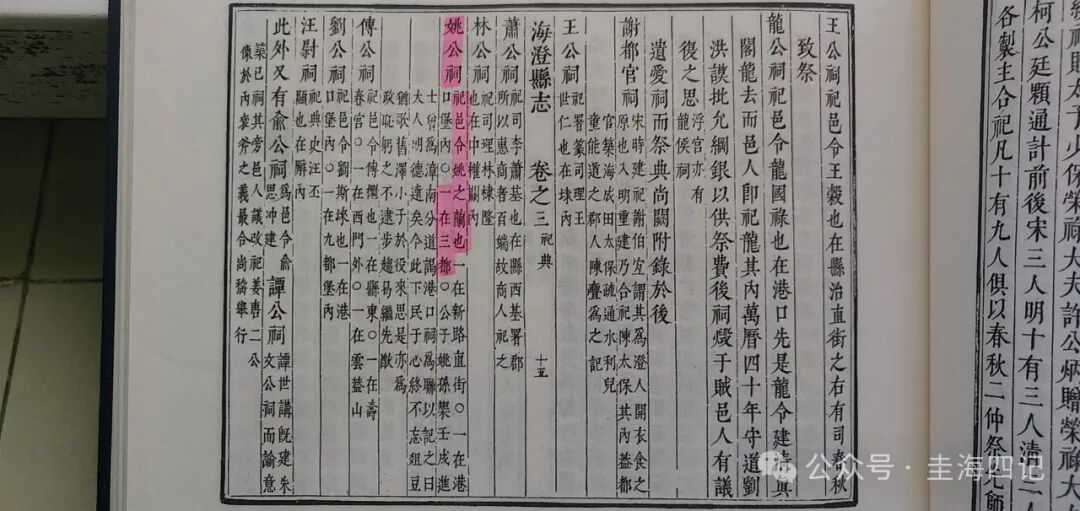 各製主合祀凡十有九人俱以春秋二仲祭先師
柯公廷顆通計前後宋三人明十有三人清二人
王公祠祀邑令王穀也在縣治直街之右有司春秋
致祭
龍公祠祀邑令龍國祿也在港口先是龍令建清與
閣龍去而邑人即祀龍其內萬曆四十年守道劉
洪謨批允綱銀以供祭費後祠燬于賊邑人有議
復之思
浮宮亦有
龍侯祠
遺愛祠而祭典尚闕附錄於後
謝都官祠
宋時建祀謝伯宜謂其為澄人開衣食之
原也入明重建乃合祀陳太保其內益都
官築海成田太保疏通水利兒
童能道之郡人陳疊為之記
王公祠
祀署篆司理王
世仁也在球內
海澄縣志
卷之三
祀典
十五
蕭公祠
祀司李蕭基也在縣西基署郡
所以惠商者百端故商人祀之
林公祠
祀司理林棟隆
也在中權關內
姚公祠
祀邑令姚之蘭也一在新路直街○一在港
口堡內○一在三都○公子姚孫榘壬戌進
士曾為漳南分道謁港口祠為聯以記之曰
大人明德遠矣今此下民于心終不忘俎豆
猶歌舊澤小子於役來思是亦為
政恥躬之不逮步趨易繼先猷
傅公祠
祀邑令傅櫆也一在縣東○一在壽
春宮○一在西門外○一在雲蓋山
劉公祠
祀邑令劉斯𪣻也一在港
口堡內○一在九都堡內
汪尉祠
祀典史汪丕
顯也在廨內
此外又有俞公祠
為邑令俞
思冲建
譚公祠
譚世講既建朱
文公祠而諭意
築已祠其旁邑人議改祀姜唐二公
像於內袞斧之義最合尚稽舉行
公众号·圭海四记